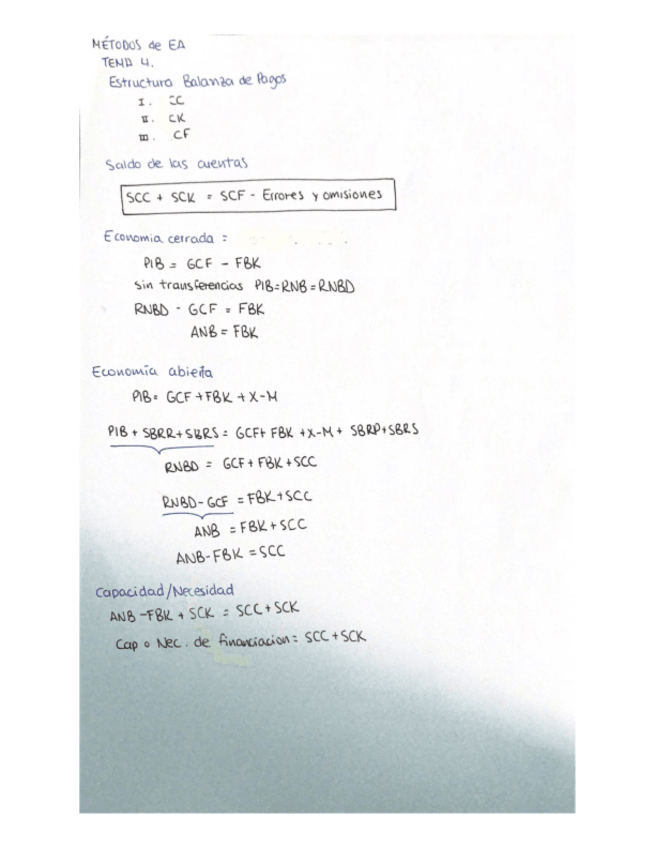 MÉTODOS de EA
TEMA 4.
Estructura Balanza de Pagos
I. CC
II. CK
III. CF
Saldo de las cuentas
SCC + SCK = SCF - Errores y omisiones
Economia cerrada =
PIB = GCF - FBK
sin transferencias PIB=RNB=RNBD
RNBD - GCF = FBK
ANB = FBK
Economía abierta
PIB= GCF+FBK + X-M
PIB + SBRR+SBRS = GCF+ FBK +X-M + SBRP+SBRS
RNBD = GCF+FBK+SCC
RNBD-GCF = FBK+SCC
ANB = FBK+SCC
ANB-FBK = SCC
Capacidad/Necesidad
ANB -FBK + SCK = SCC+SCK
Cap o Nec. de financiacion= SCC+SCK